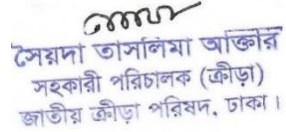 সৈয়দা তাসলিমা আক্তার
সহকারী পরিচালক (ক্রীড়া)
জাতীয় ক্রীড়া পরিষদ, ঢাকা।